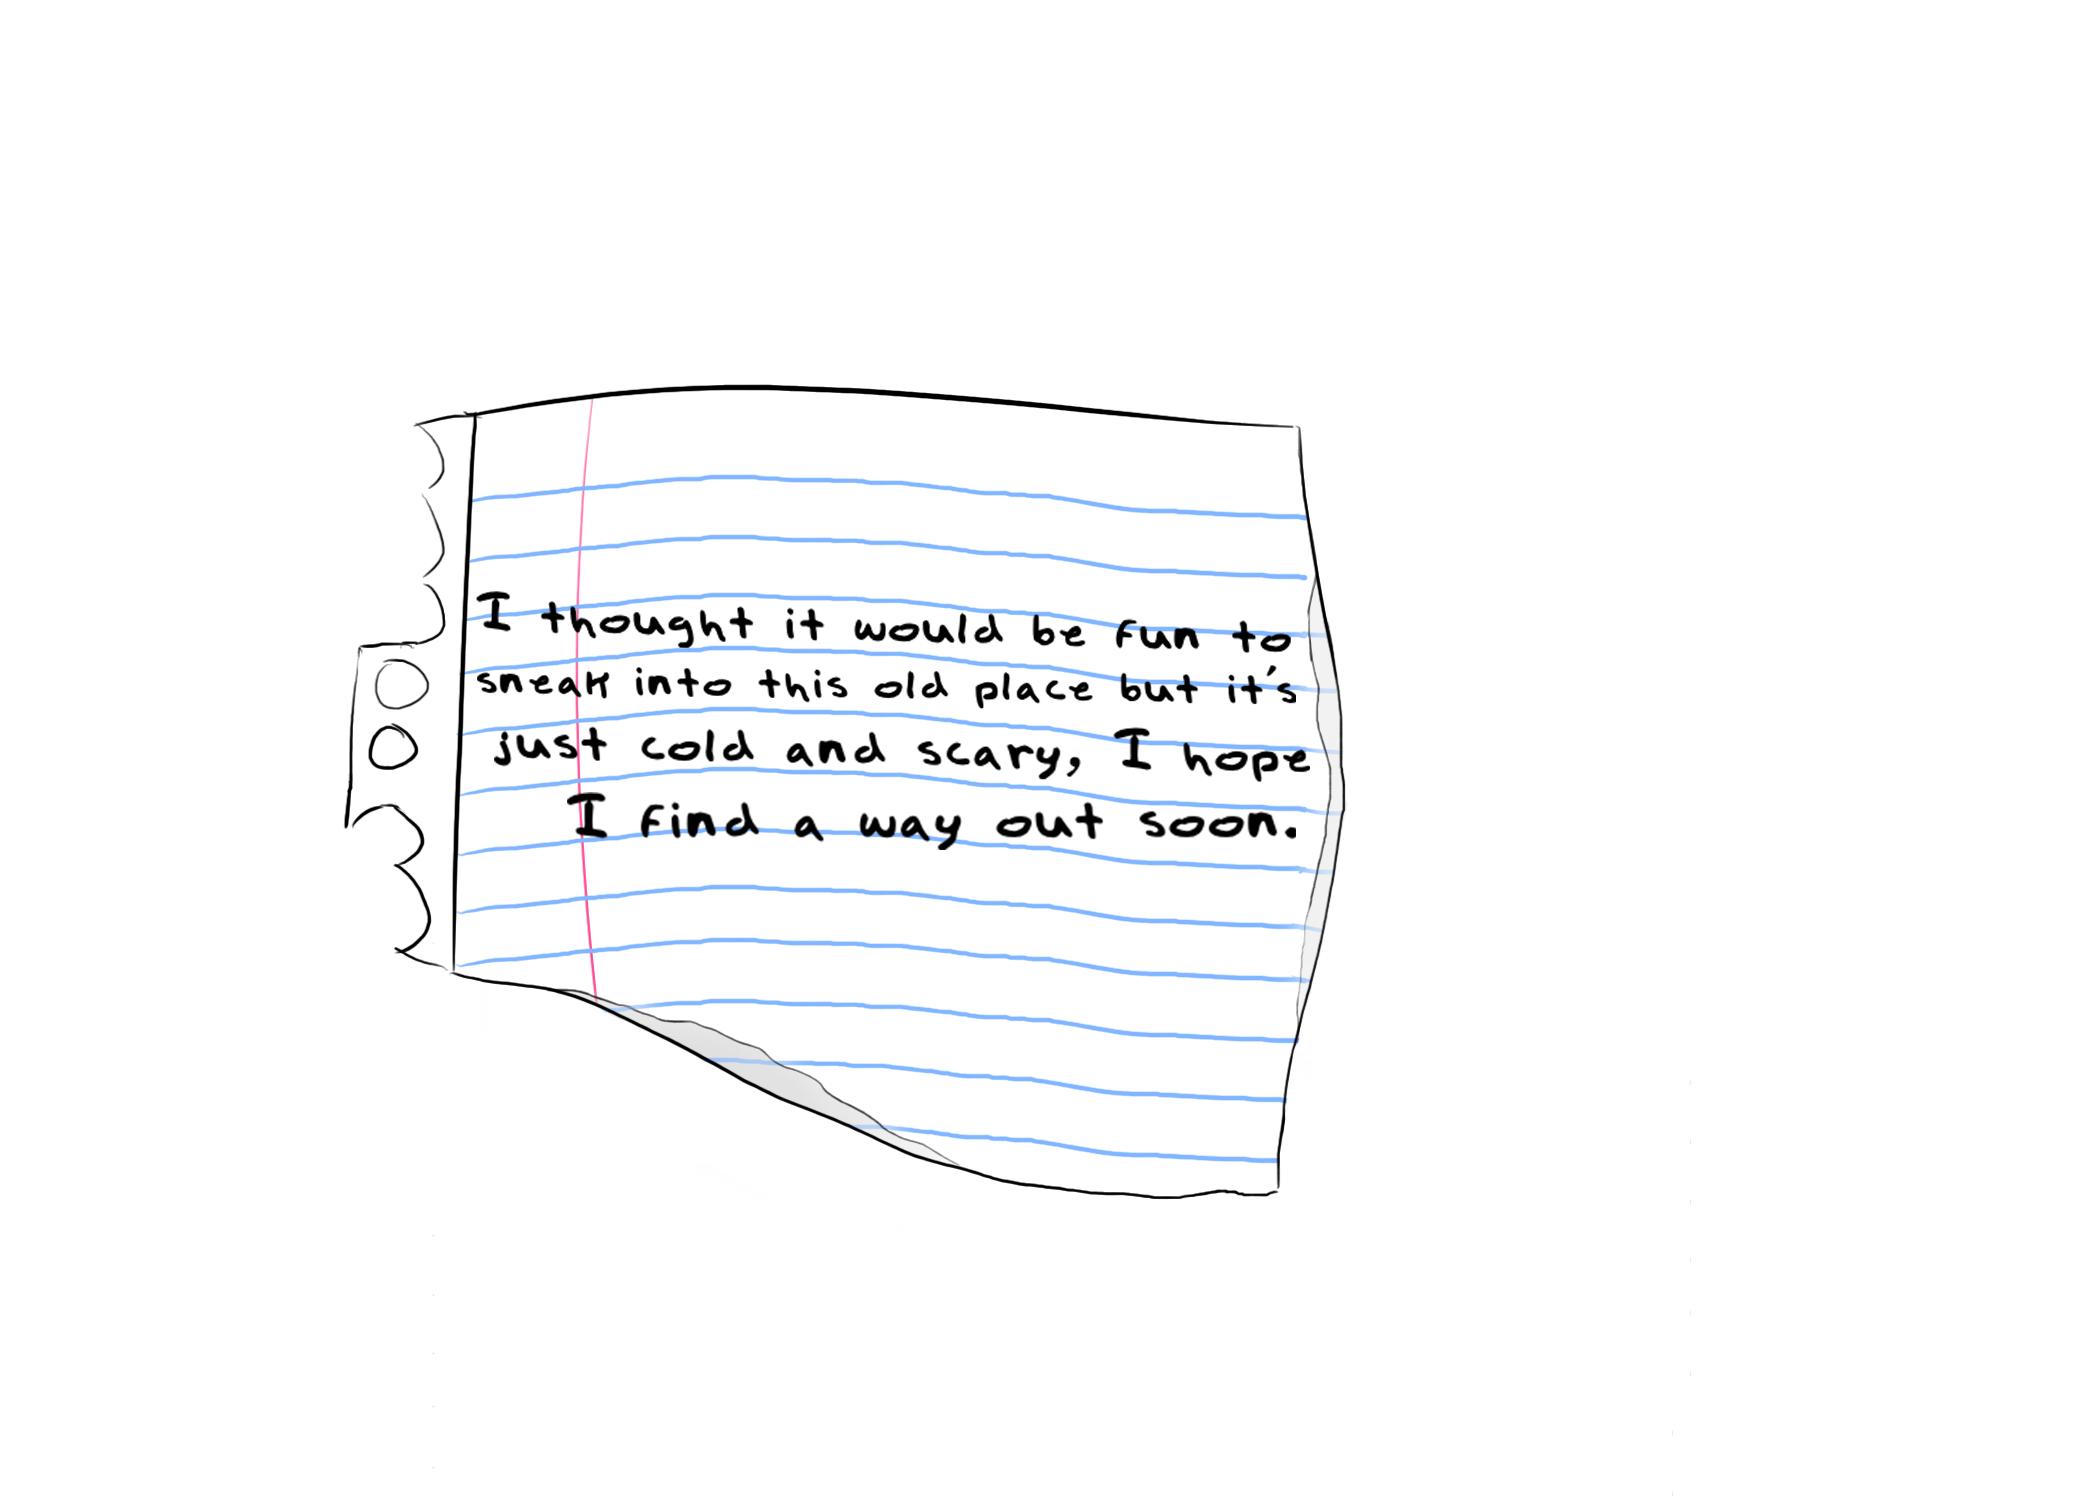 I thought it would be fun to
sneak into this old place but it's
just cold and scary, I hope
I find a way out soon.